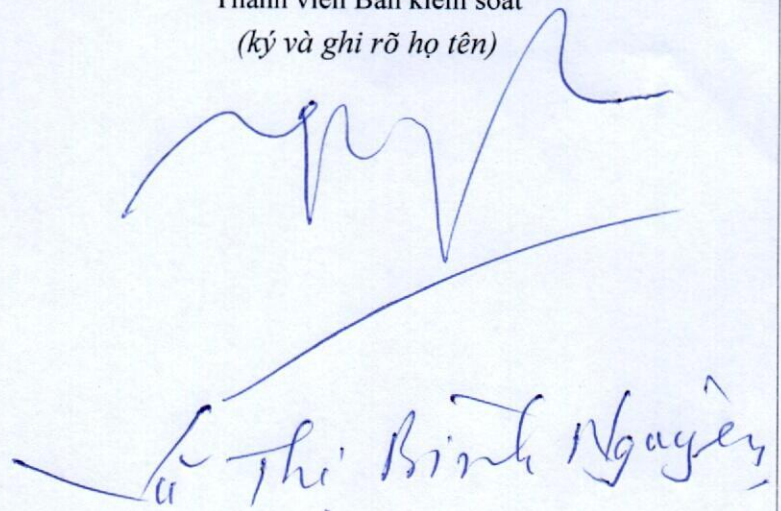 Thành viên Ban kiểm soát
(ký và ghi rõ họ tên)
Vũ Thị Bình Nguyên